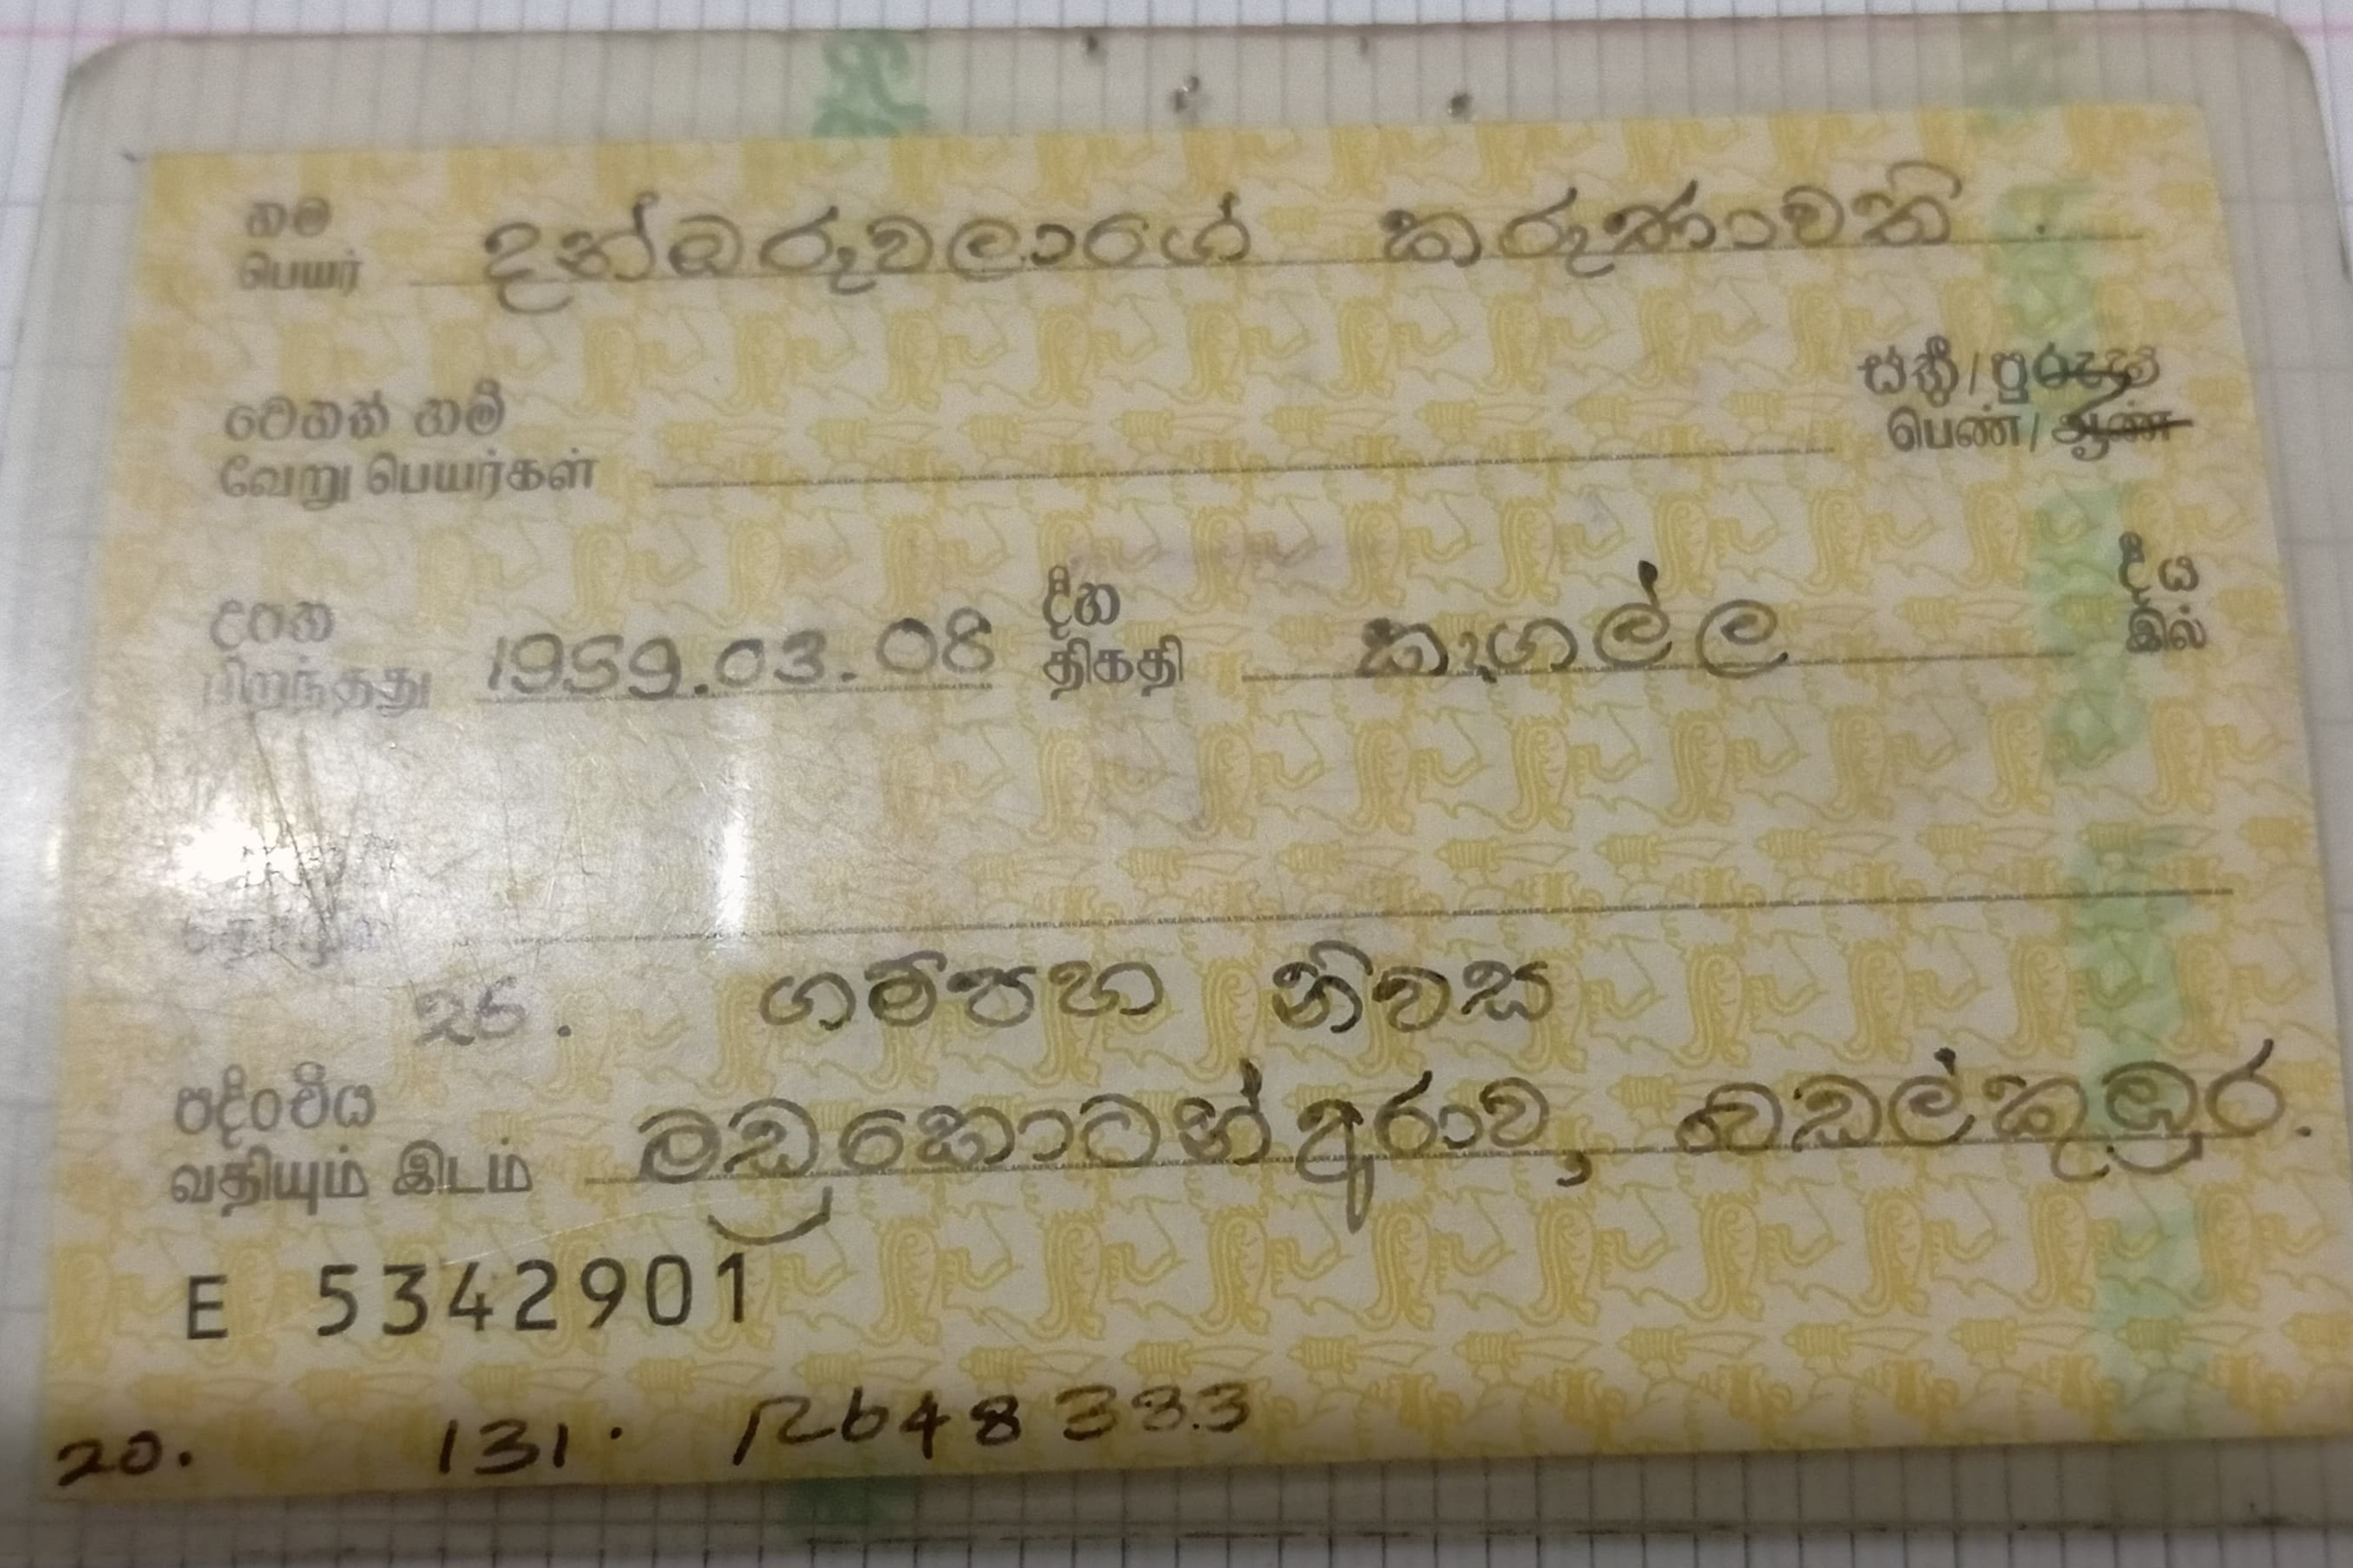 නම දන්ඹරුවලාගේ කරුණාවතී.
பெயர்
වෙනත් නම් ස්ත්‍රී/පුරුෂ
வேறு பெயர்கள் பெண்/ஆண்
උපන 1959.03.08 දින කෑගල්ල දීය
பிறந்தது திகதி இல்
26. ගම්පහ නිවස
පදිංචිය මඩුකොටන්අරාව, වෙඩල්කුඹුර.
வதியும் இடம்
E 5342901
20. 131. R648333